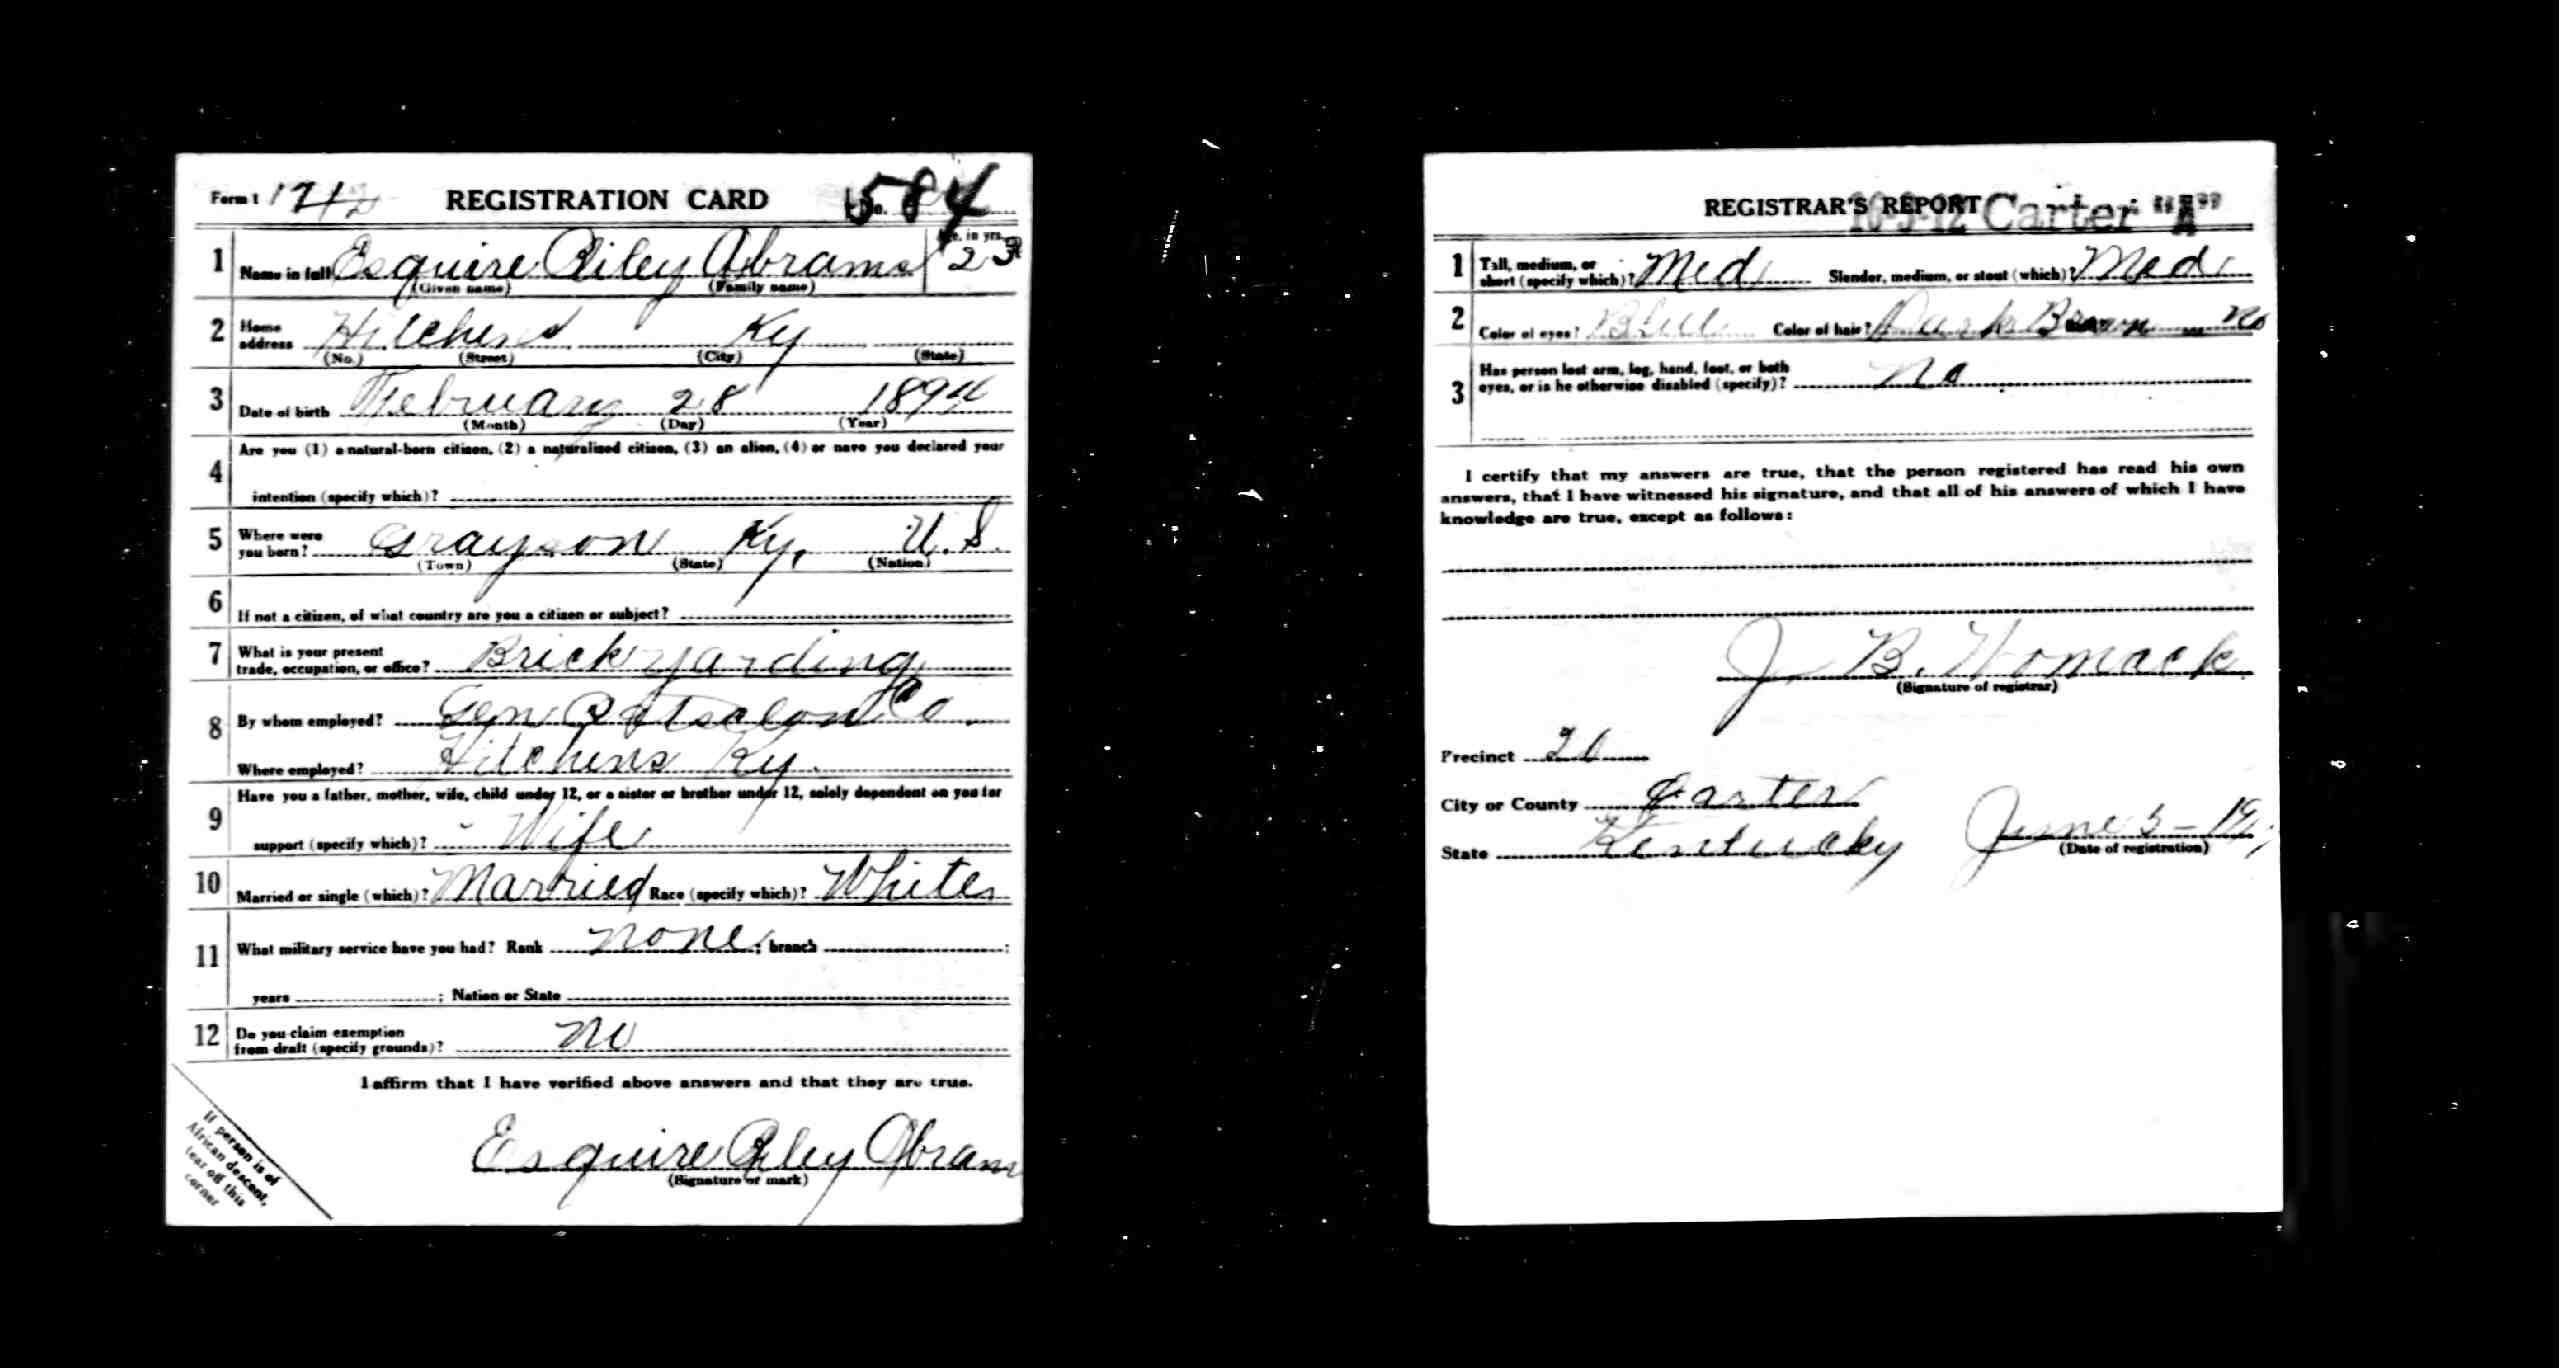 Form 1 1742 REGISTRATION CARD No. 584
1 Name in full Esquire Riley Abrams Age, in yrs. 23
(Given name) (Family name)
2 Home address Hitchens Ky
(No.) (Street) (City) (State)
3 Date of birth February 28 1894
(Month) (Day) (Year)
4 Are you (1) a natural-born citizen, (2) a naturalized citizen, (3) an alien, (4) or have you declared your
intention (specify which)?
5 Where were you born? Grayson Ky, U.S.
(Town) (State) (Nation)
6 If not a citizen, of what country are you a citizen or subject?
7 What is your present trade, occupation, or office? Brickyarding
8 By whom employed? Gen Co
Where employed? Hitchins Ky.
9 Have you a father, mother, wife, child under 12, or a sister or brother under 12, solely dependent on you for
support (specify which)? Wife
10 Married or single (which)? Married Race (specify which)? White
11 What military service have you had? Rank none ; branch ;
years ; Nation or State
12 Do you claim exemption from draft (specify grounds)? no
I affirm that I have verified above answers and that they are true.
Esquire Riley Abrams
(Signature or mark)
If person is of
African descent,
tear off this
corner
REGISTRAR'S REPORT Carter "A"
1 Tall, medium, or short (specify which)? Med Slender, medium, or stout (which)? Med
2 Color of eyes? Blue Color of hair? Dark Brown no
3 Has person lost arm, leg, hand, foot, or both
eyes, or is he otherwise disabled (specify)? no
I certify that my answers are true, that the person registered has read his own
answers, that I have witnessed his signature, and that all of his answers of which I have
knowledge are true, except as follows:
J B. Womack
(Signature of registrar)
Precinct 20
City or County Carter
State Kentucky June 5-
(Date of registration)